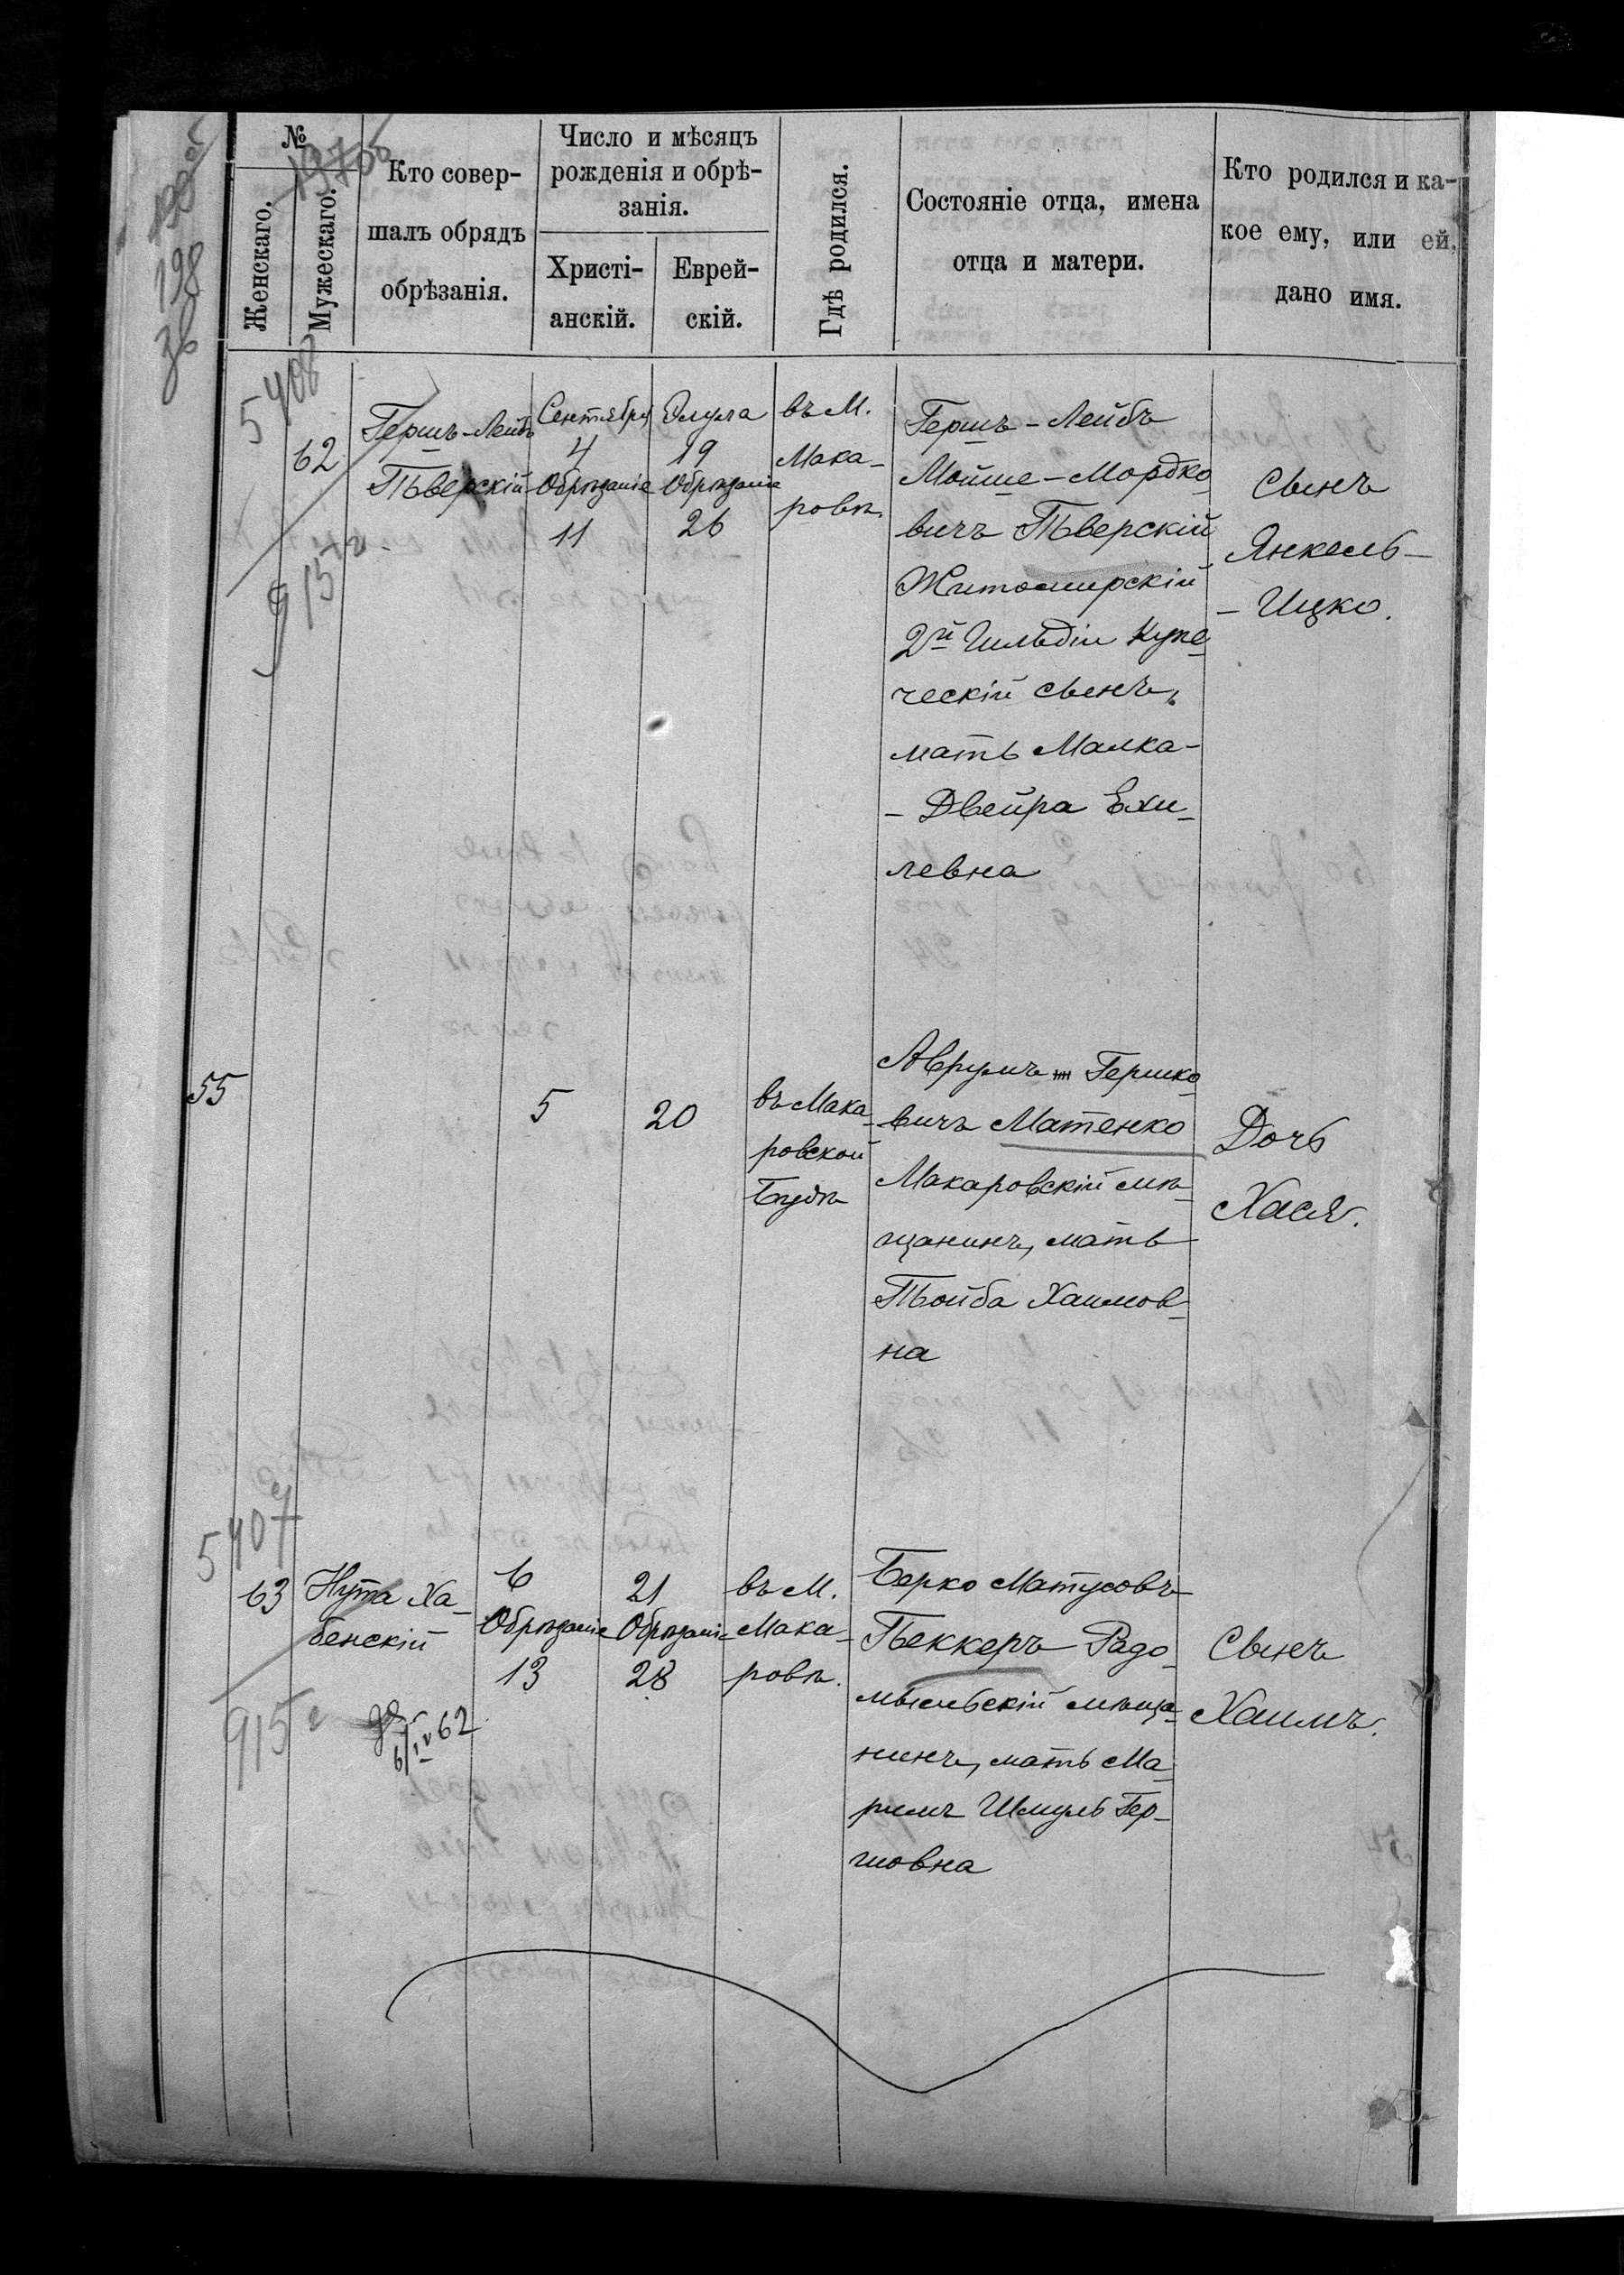 №
Женскаго.
Мужескаго.
Кто совер-
шалъ обрядъ
обрѣзанія.
Число и мѣсяцъ
рожденія и обрѣ-
занія.
Христі-
анскій.
Еврей-
скій.
Гдѣ родился.
Состояніе отца, имена
отца и матери.
Кто родился и ка-
кое ему, или ей,
дано имя.
198
5408
62
915 г.
Гершъ-Лейбъ
Тверскій
Сентября
4
Обрѣзаніе
11
Элула
19
Обрѣзаніе
26
въ М.
Мака-
ровѣ.
Гершъ-Лейбъ
Мойше-Мордко
вичъ Тверскій
Житомирскій
2й Гильдіи Купе
ческій сынъ,
мать Малка-
- Двейра Ехи
левна
Сынъ
Янкель-
- Ицко.
55
5
20
въ Мака
ровской
Будѣ
Аврумъ Гершко
вичъ Матенко
Макаровскій мѣ
щанинъ, мать
Тойба Хаимов
на
Дочь
Хася.
5407
63
915 г
Нута Ха-
бенскій
6/IV 62
6
Обрѣзаніе
13
21
Обрѣзаніе
28
въ М.
Мака-
ровѣ.
Берко Матусовъ
Беккеръ Радо
мысльскій мѣща
нинъ, мать Ма
римъ Шмуль Гер-
шовна
Сынъ
Хаимъ.